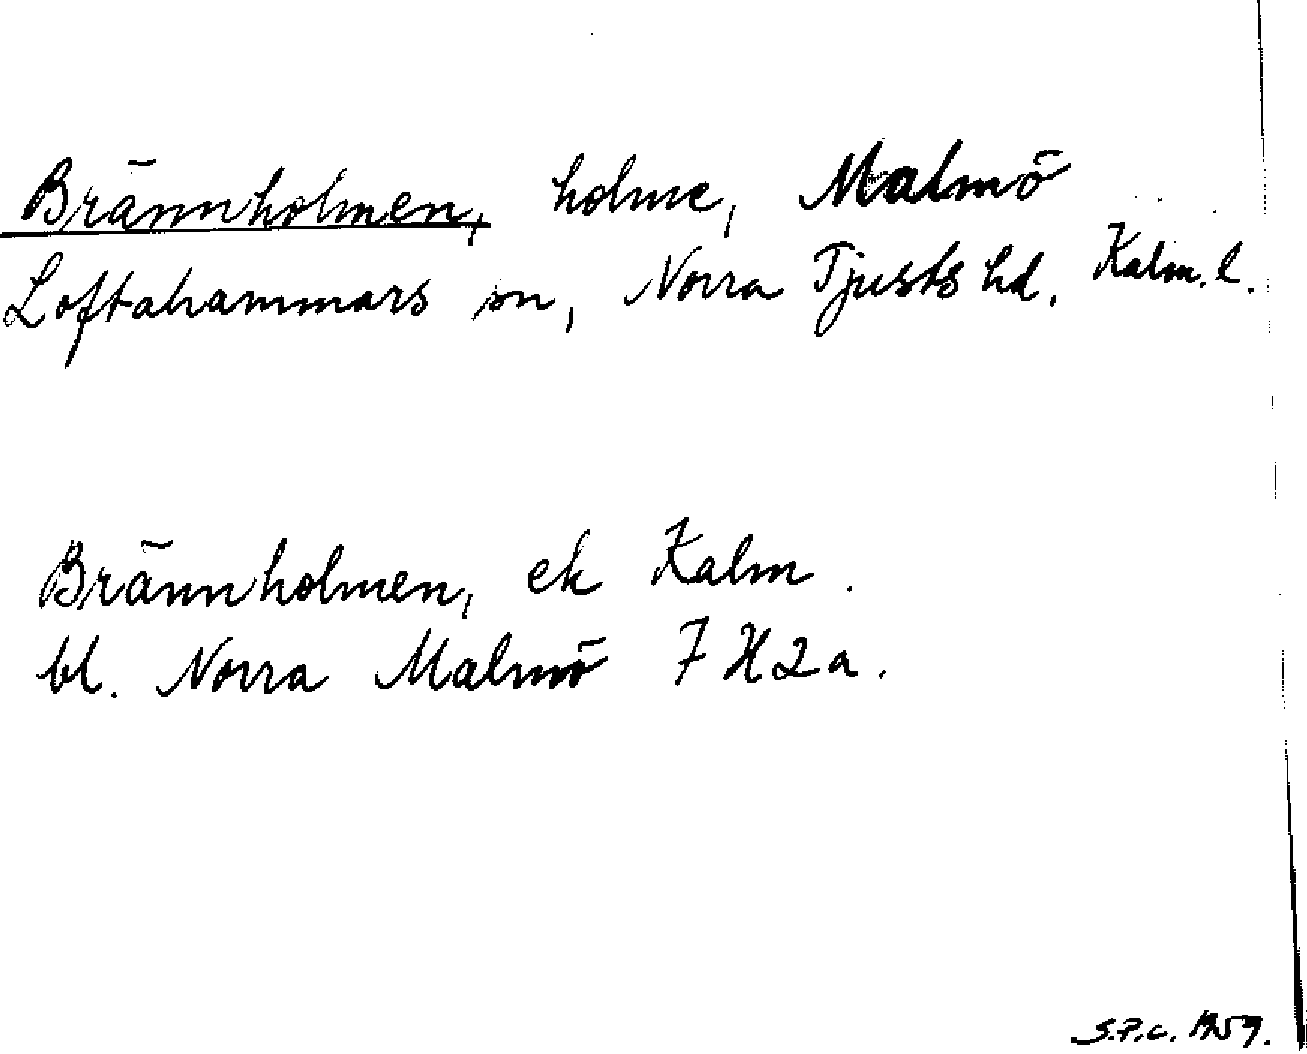 Brännholmen, holme, Malmö
Loftahammars sn, Norra Tjusts hd, Kalm. l.
Brännholmen, ek Kalm.
bl. Norra Malmö 7 H 2 a.
S.P.C. 1959.